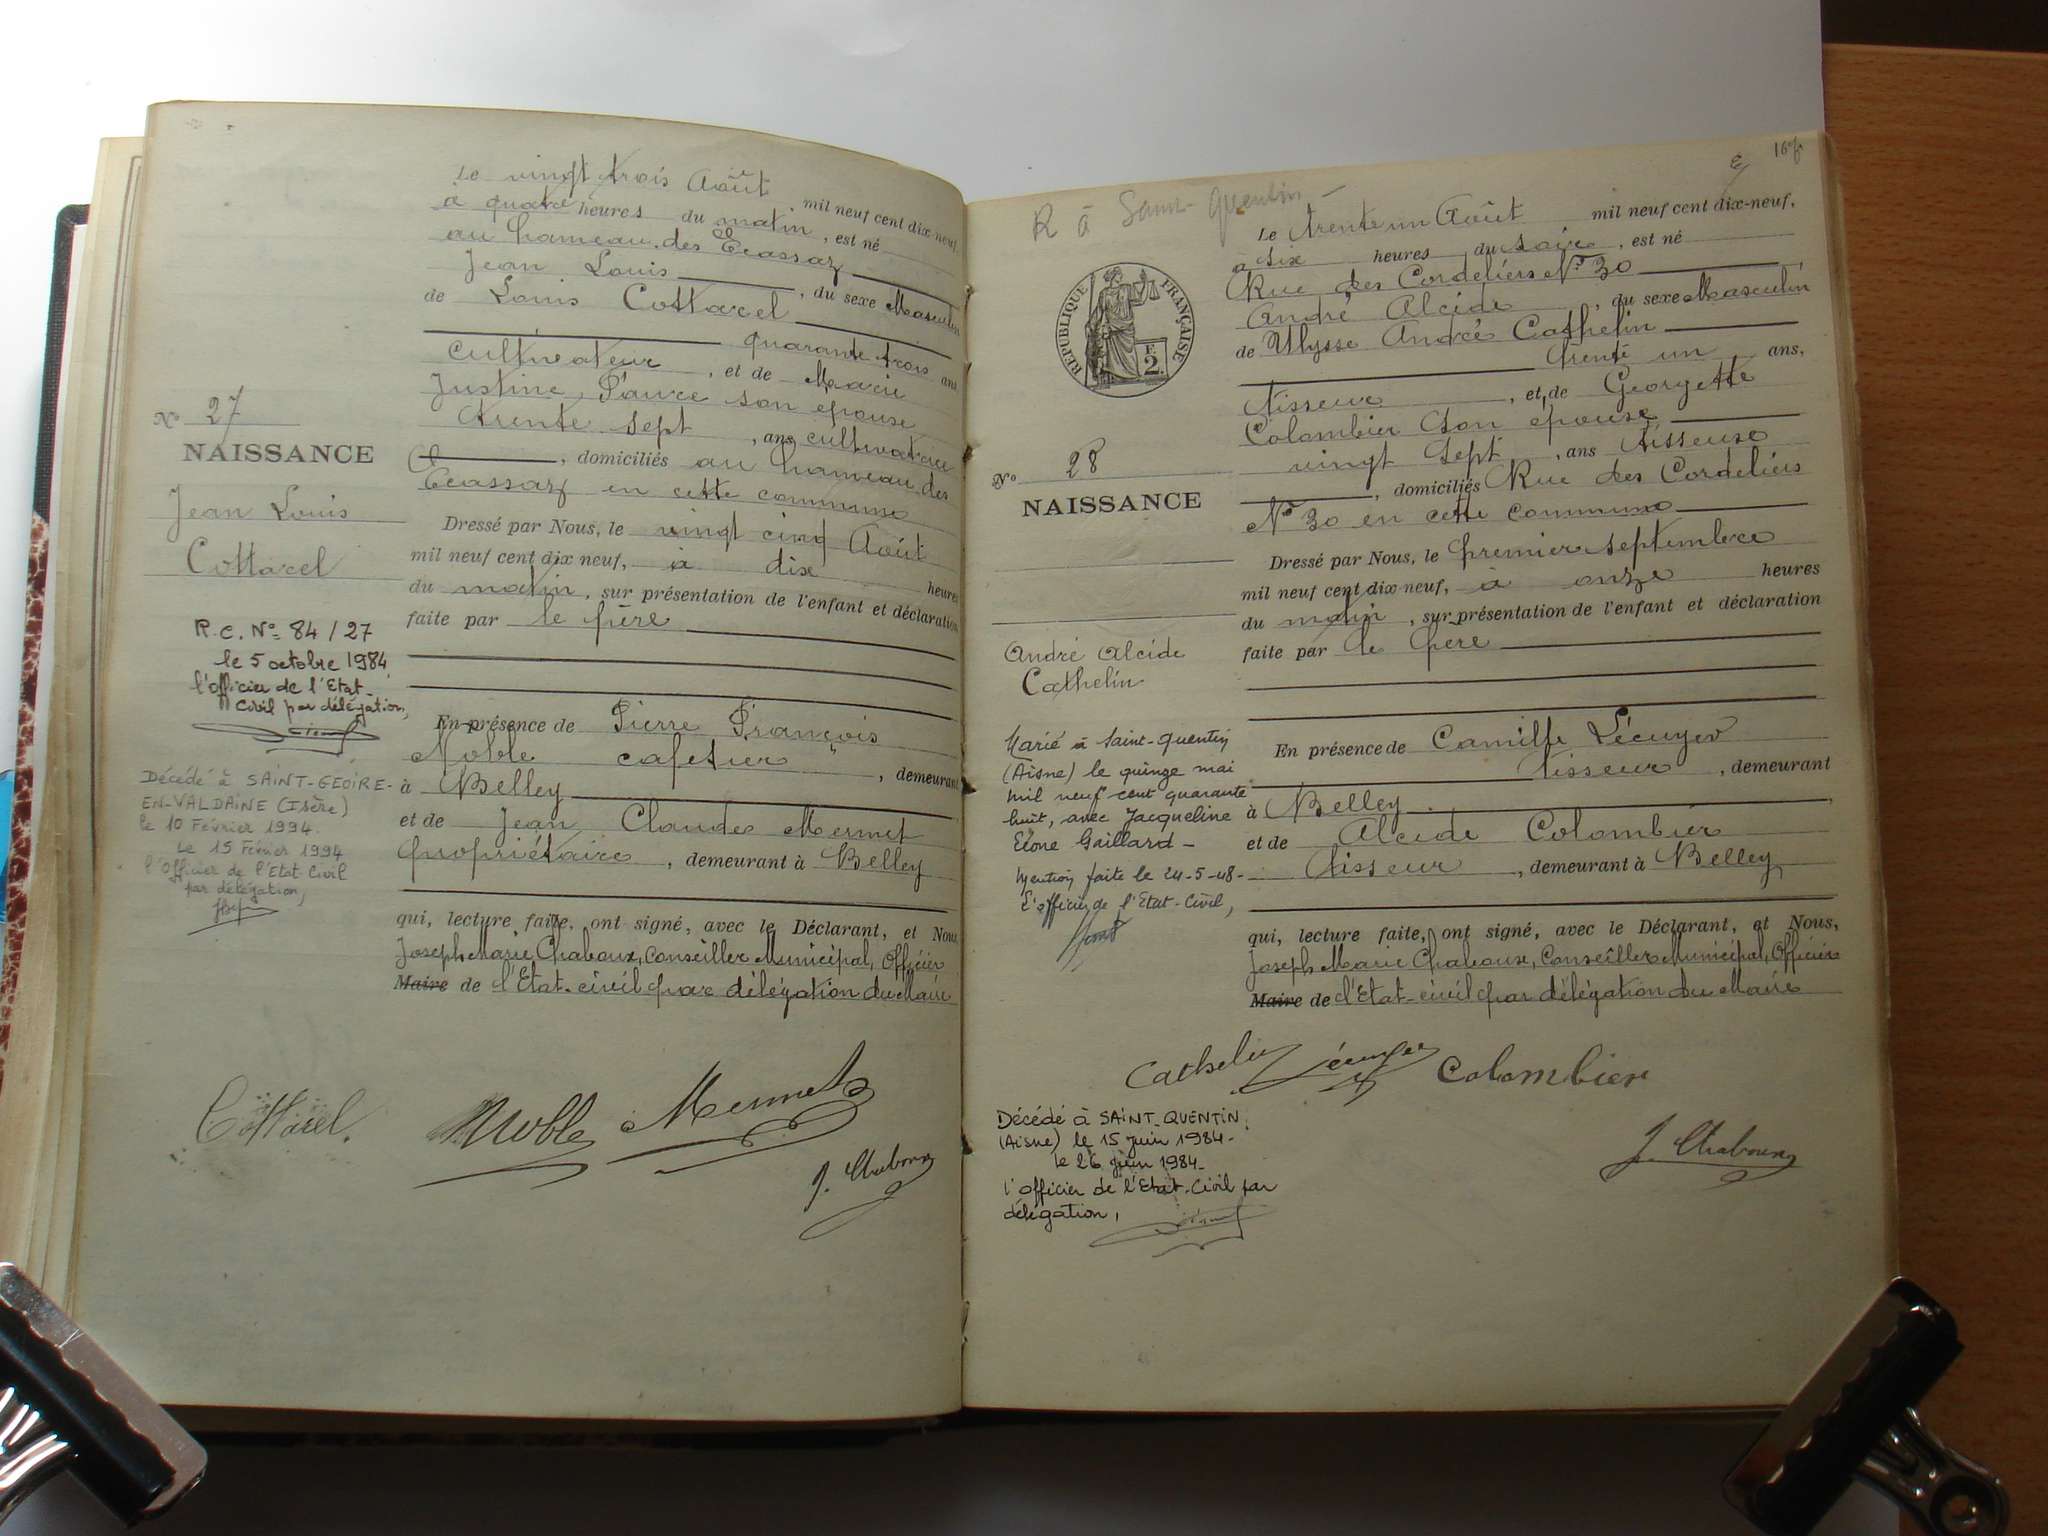 Le vingt trois Août, mil neuf cent dix-neuf,
à quatre heures du matin, est né
au hameau des Ecassaz
Jean Louis, du sexe Masculin
de Louis Cottarel
quarante trois ans
cultivateur, et de Marie
Justine Favre son épouse
trente sept, ans cultivatrice
, domiciliés au hameau des
Ecassaz en cette commune
Dressé par Nous, le vingt cinq Août
mil neuf cent dix neuf, à dix heures
du matin, sur présentation de l'enfant et déclaration
faite par le père
En présence de Pierre François
Noble cafetier, demeurant
à Belley
et de Jean Claude Mermet
propriétaire, demeurant à Belley
qui, lecture faite, ont signé, avec le Déclarant, et Nous,
Joseph Marie Chaboux, Conseiller Municipal, Officier
Maire de l'Etat-civil par délégation du Maire
N° 27
NAISSANCE
Jean Louis
Cottarel
R.C. N° 84/27
le 5 octobre 1984
l'officier de l'Etat-
Civil par délégation,
Décédé à SAINT-GEOIRE-
EN-VALDAINE (Isère)
le 10 Février 1994.
Le 15 Février 1994
l'Officier de l'Etat Civil
par délégation,
Cottarel
Noble
Mermet
J. Chaboux
16
R à Saint-Quentin -
RÉPUBLIQUE FRANÇAISE
2
Le trente un Août mil neuf cent dix-neuf,
à six heures du soir, est né
Rue des Cordeliers N° 30
André Alcide, du sexe Masculin
de Ulysse André Cathelin
trente un ans,
tisseur, et de Georgette
Colombier son épouse
vingt sept, ans tisseuse
, domiciliés Rue des Cordeliers
N° 30 en cette commune
Dressé par Nous, le premier septembre
mil neuf cent dix neuf, à onze heures
du matin, sur présentation de l'enfant et déclaration
faite par le père
En présence de Camille Lécuyer
tisseur, demeurant
à Belley
et de Alcide Colombier
tisseur, demeurant à Belley
qui, lecture faite, ont signé, avec le Déclarant, et Nous,
Joseph Marie Chaboux, Conseiller Municipal, Officier
Maire de l'Etat-civil par délégation du Maire
N° 28
NAISSANCE
André Alcide
Cathelin
Marié à Saint-Quentin
(Aisne) le quinze mai
mil neuf cent quarante
huit, avec Jacqueline
Elone Gaillard -
Mention faite le 24-5-48-
L'officier de l'Etat-Civil,
Cathelin
Lécuyer
Colombier
J. Chaboux
Décédé à SAINT-QUENTIN
(Aisne) le 15 juin 1984-
le 26 juin 1984-
l'officier de l'Etat-Civil par
délégation,